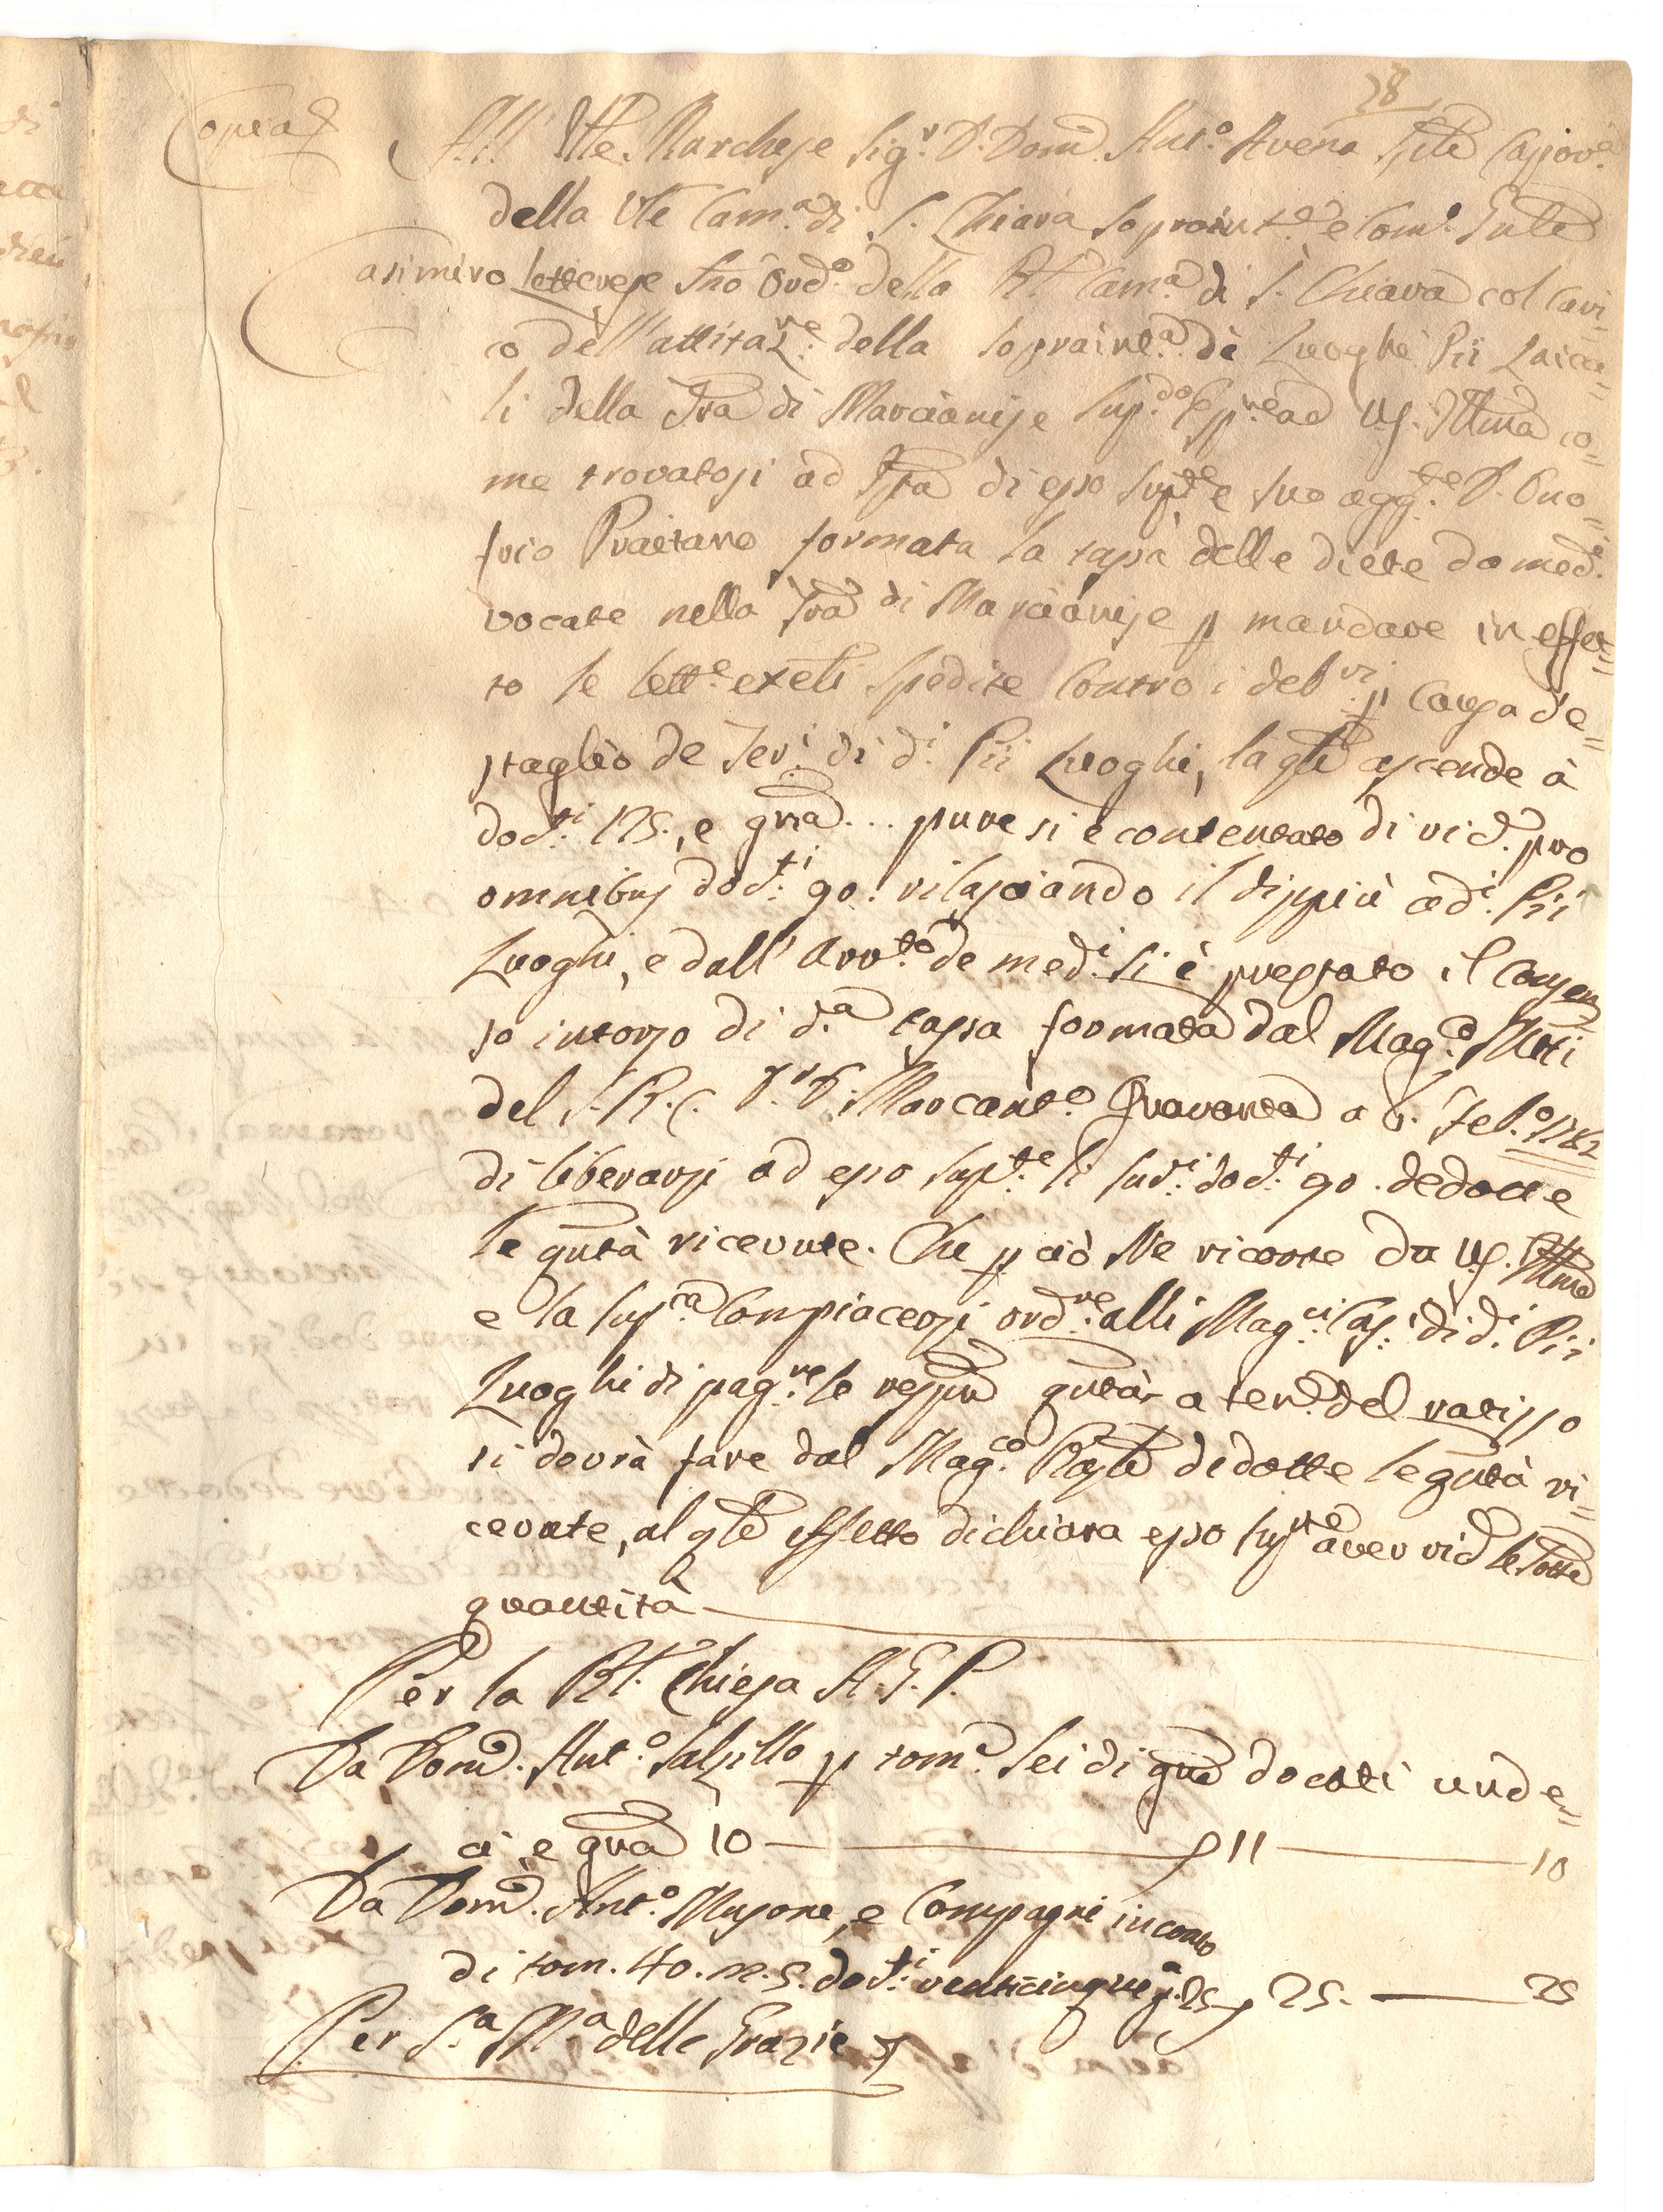 28
Copia
All' Ille Marchese Sig.r D. Dom. Ant.o Avena Sple Caporta
della Rle Cam.a di S. Chiara Sopraint.e e Com.o Gnle
Casimiro Letterese Sno Ord.o della Rl. Cam.a di S. Chiara col cari=
co dell'attitaz.ne della Sopraint.a de Luoghi Pii Laica=
li della Tra di Marcianise Sup.do Esp.ne ad V.S. Illma co=
me trovatosi ad Ista di esso Supte e suo agg.te D. Ono=
frio Praitano formata la tassa delle diete da med.
vocate nella Tra di Marcianise p mandare in effet=
to le lett.e exeli spedite contro i deb.ri p causa d'e=
staglio de Ter.i di d.i Pii Luoghi, la qle ascende à
doc.ti 175., e gna... pure si è contentato di ric. pro
omnibus doc.ti 90. rilasciando il dippiù a d.i Pii
Luoghi, e dall' Avv.to de med.i si è prestato il consen=
so intorno di d.a tassa formata dal Mag.co Mtti
del S.R.C. D.r D. Marcant.o Quaranta a 6. Feb.o 1782
di liberarsi ad esso Sup.te li sud.i doc.ti 90. dedotte
le qntà ricevute. Che p ciò Ne ricorre da V.S. Illma
e la sup.ca compiacersi ord.ne alli Mag.ci Cas.i di d.i Pii
Luoghi di pag.ne le respve qntà a ten.e del ratizzo
si dovrà fare dal Mag.co Rale dedotte le qntà ri=
cevute, al qle effetto dichiara esso Supte aver ric. le sotte
quantità
Per la Rl. Chiesa A.G.P.
Da Dom. Ant.o Salzillo p tom.a sei di gna docati unde=
ci e gna 10 — 11 — 10
Da Dom. Ant.o Musone, e Compagni in conto
di tom. 40. m. 5. doc.ti venticinque g. 25 25. — 25
Per S.a M.a delle Grazie